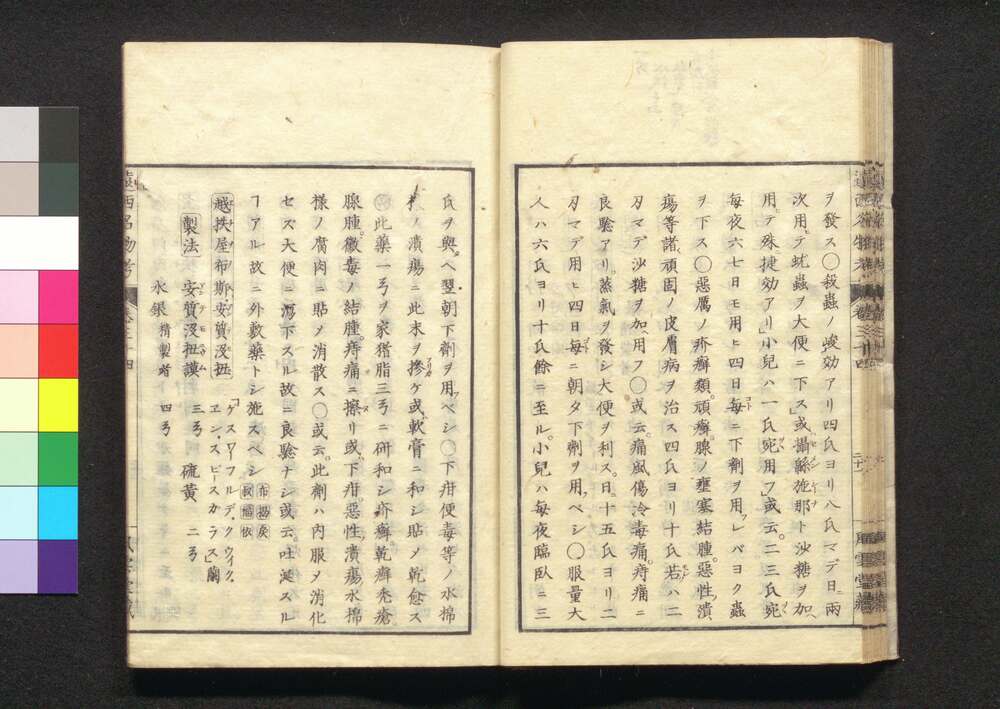 ヲ發ス○殺蟲ノ峻効アリ四氏ヨリ八氏マデ日ニ兩
次用テ蚘蟲ヲ大便ニ下ス或攝綿施那ト沙糖ヲ加ヘ
用テ殊捷効アリ小兒ハ一氏宛用フ或云二三氏宛
每夜六七日モ用ヒ四日每ニ下劑ヲ用フレバヨク蟲
ヲ下ス○惡厲ノ疥癬類頑癬腺ノ壅塞結腫惡性潰
瘍等諸頑固ノ皮膚病ヲ治ス四氏ヨリ十氏若ハ二
刄マデ沙糖ヲ加用フ○或云痛風傷冷毒痛疛痛ニ
良驗アリ蒸氣ヲ發シ大便ヲ利ス日ニ十五氏ヨリ二
刄マデ用ヒ四日每ニ朝夕下劑ヲ用フベシ○服量大
人ハ六氏ヨリ十氏餘ニ至ル小兒ハ每夜臨臥ニ三
遠西名物考
風雲堂藏
氏ヲ與ヘ翌朝下劑ヲ用フベシ○下疳便毒等ノ水棉
ノ潰瘍ニ此末ヲ摻ケ或軟膏ニ和シ貼メ乾愈ス
此藥一弓ヲ家猪脂三弓ニ研和シ疥癬乾癬禿瘡
腺腫黴毒ノ結腫疛痛ニ擦リ或下疳惡性潰瘍水棉
樣ノ腐肉ニ貼メ消散ス○或云此劑ハ內服メ消化
セズ大便ニ瀉下スル故ニ良驗ナシ或云吐涎スル
ヿアル故ニ外敷藥トシ施スベシ
越扶屋布斯安質沒扭
ゲスワーフルデ、クウイク、
エン、スピースガラス 蘭
製法 安質沒扭謨 三弓 硫黃 二弓
水銀精製者 四弓
遠西名物考